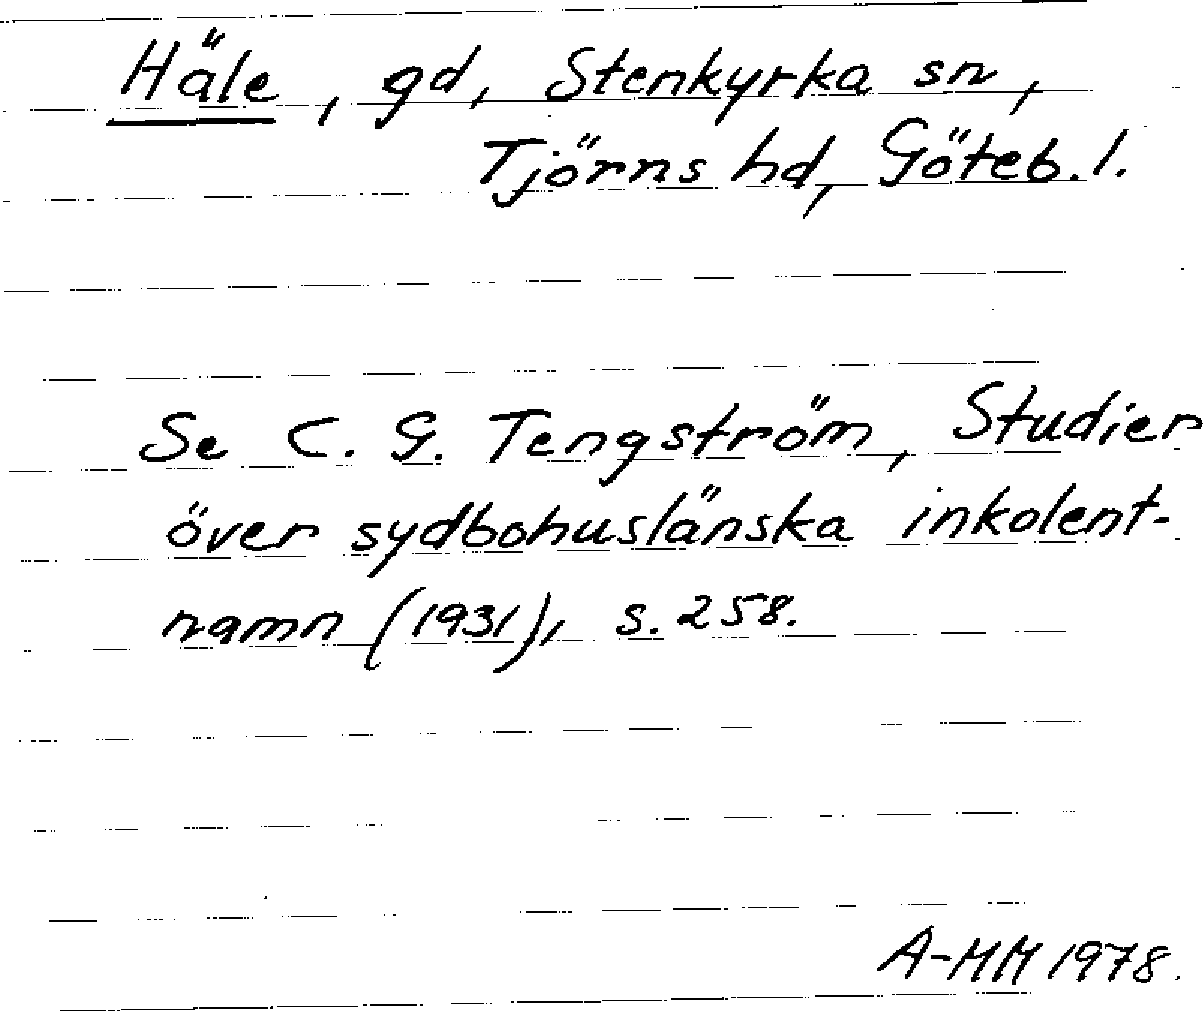 Häle, gd, Stenkyrka sn,
Tjörns hd, Göteb. l.
Se C. G. Tengström, Studier
över sydbohuslänska inkolent-
namn (1931), s. 258.
A-MM 1978.